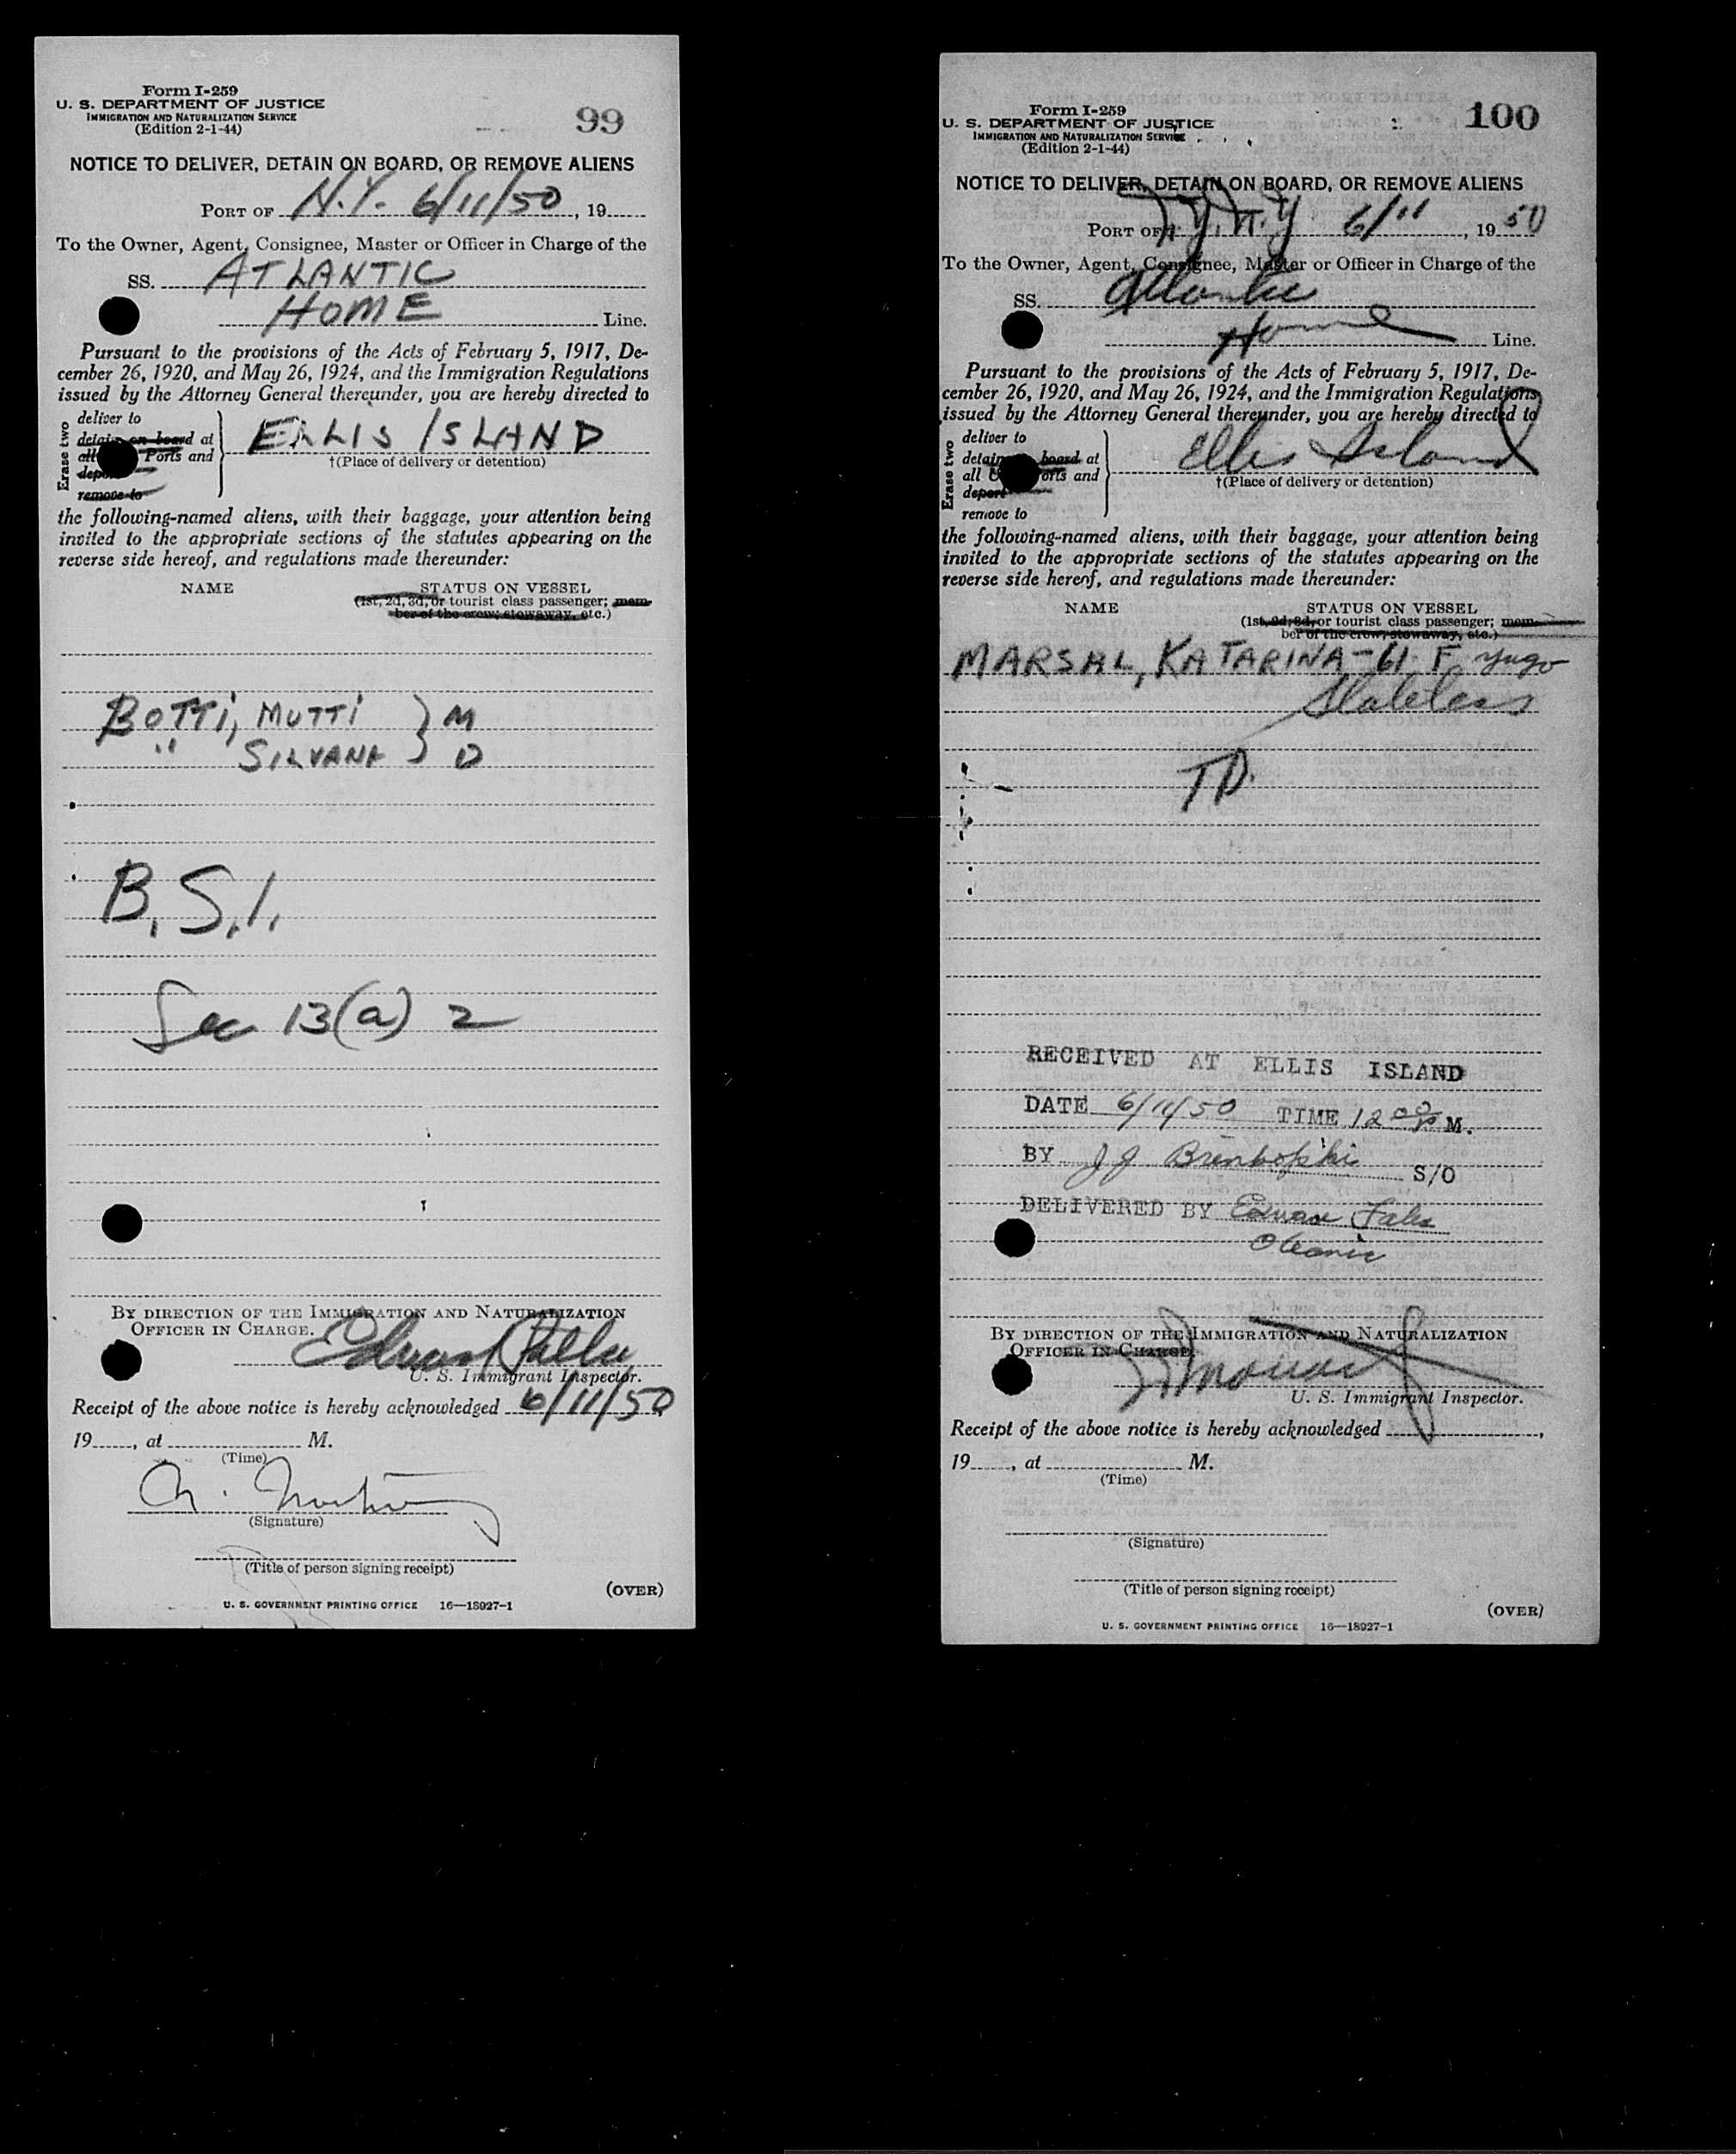 Form I-259
U. S. DEPARTMENT OF JUSTICE
IMMIGRATION AND NATURALIZATION SERVICE
(Edition 2-1-44)
99
NOTICE TO DELIVER, DETAIN ON BOARD, OR REMOVE ALIENS
PORT OF N.Y. 6/11/50, 19
To the Owner, Agent, Consignee, Master or Officer in Charge of the
SS. ATLANTIC
HOME Line.
Pursuant to the provisions of the Acts of February 5, 1917, De-
cember 26, 1920, and May 26, 1924, and the Immigration Regulations
issued by the Attorney General thereunder, you are hereby directed to
Erase two
deliver to
detain on board at
all Ports and
remove to
ELLIS ISLAND
†(Place of delivery or detention)
the following-named aliens, with their baggage, your attention being
invited to the appropriate sections of the statutes appearing on the
reverse side hereof, and regulations made thereunder:
NAME STATUS ON VESSEL
(1st, 2d, 3d, or tourist class passenger; mem-
ber of the crew; stowaway, etc.)
BOTTI, MUTTI } M
" SILVANA } D
B.S.I.
Sec 13(a) 2
BY DIRECTION OF THE IMMIGRATION AND NATURALIZATION
OFFICER IN CHARGE.
U. S. Immigrant Inspector.
Receipt of the above notice is hereby acknowledged 6/11/50
19, at M.
(Time)
(Signature)
(Title of person signing receipt)
(OVER)
U. S. GOVERNMENT PRINTING OFFICE 16—18927-1
Form I-259
U. S. DEPARTMENT OF JUSTICE
IMMIGRATION AND NATURALIZATION SERVICE
(Edition 2-1-44)
100
NOTICE TO DELIVER, DETAIN ON BOARD, OR REMOVE ALIENS
PORT OF N.Y. 6/11, 1950
To the Owner, Agent, Consignee, Master or Officer in Charge of the
SS. Atlantic
Home Line.
Pursuant to the provisions of the Acts of February 5, 1917, De-
cember 26, 1920, and May 26, 1924, and the Immigration Regulations
issued by the Attorney General thereunder, you are hereby directed to
Erase two
deliver to
detain board at
all Ports and
deport
remove to
Ellis Island
†(Place of delivery or detention)
the following-named aliens, with their baggage, your attention being
invited to the appropriate sections of the statutes appearing on the
reverse side hereof, and regulations made thereunder:
NAME STATUS ON VESSEL
(1st, 2d, 3d, or tourist class passenger; mem-
ber of the crew; stowaway, etc.)
MARSAL, KATARINA - 61 F Yugo
Stateless
TD.
RECEIVED AT ELLIS ISLAND
DATE 6/11/50 TIME 12 00 P M.
BY S/O
DELIVERED BY
BY DIRECTION OF THE IMMIGRATION AND NATURALIZATION
OFFICER IN CHARGE.
U. S. Immigrant Inspector.
Receipt of the above notice is hereby acknowledged ,
19, at M.
(Time)
(Signature)
(Title of person signing receipt)
(OVER)
U. S. GOVERNMENT PRINTING OFFICE 16—18927-1